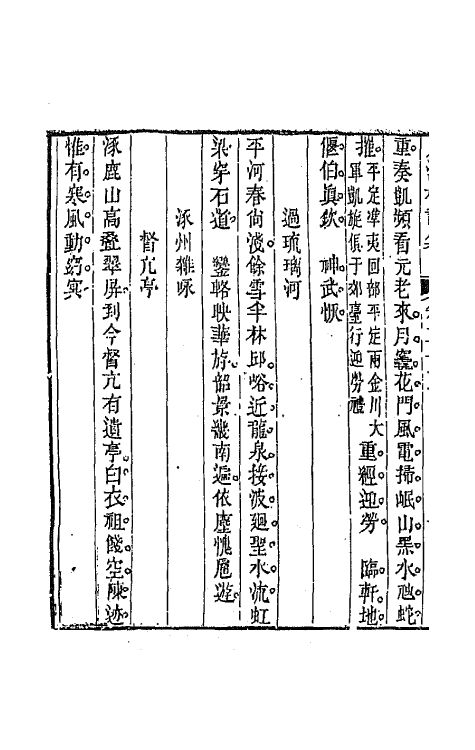 重奏凱頻看元老來月竁花門風電掃岷山黑水虺蛇
摧平定準夷回部平定兩金川大軍凱旋俱于郊臺行迎勞禮重經迎勞　臨軒地
偃伯眞欽　神武恢
過琉璃河
平河春尙淺餘雪半林邱峪近龍泉接波廻聖水流虹
梁穿石道　鑾輅映華斿韶景畿南遍依塵愧扈遊
涿州雜咏
督亢亭
涿鹿山高疊翠屏到今督亢有遺亭白衣祖餞空陳迹
惟有寒風動窈冥